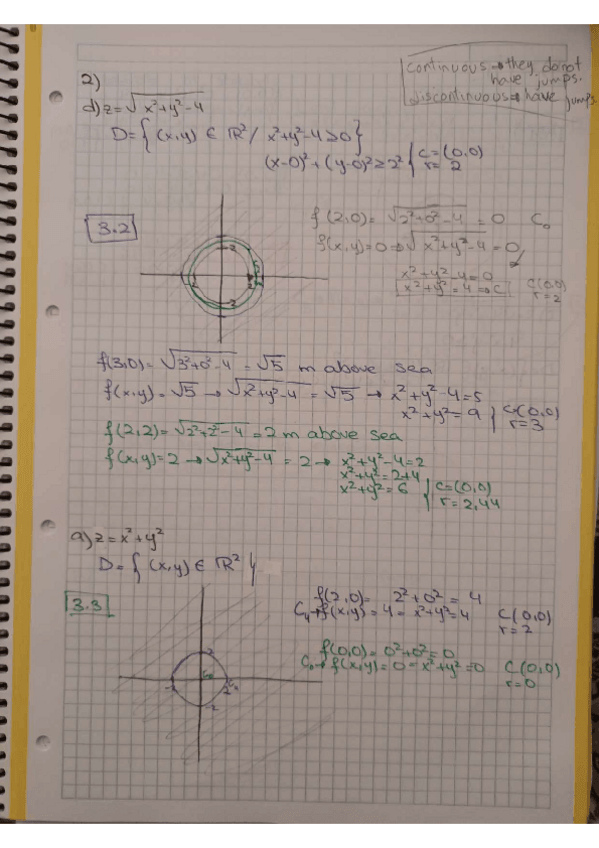 continuous → they do not
have jumps.
discontinuous → have jumps
2)
d) z = √x²+y²-4
D = { (x,y) ∈ ℝ² / x²+y²-4 ≥ 0 }
(x-0)² + (y-0)² ≥ 2² { C = (0,0)
r = 2
3.2
f(2,0) = √2²+0²-4 = 0 C₀
f(x,y) = 0 → √x²+y²-4 = 0
x²+y²-4 = 0
x²+y² = 4 → C C(0,0)
r = 2
f(3,0) = √3²+0²-4 = √5 m above sea
f(x,y) = √5 → √x²+y²-4 = √5 → x²+y²-4 = 5
x²+y² = 9 { C(0,0)
r = 3
f(2,2) = √2²+2²-4 = 2 m above sea
f(x,y) = 2 → √x²+y²-4 = 2 → x²+y²-4 = 2
x²+y² = 2+4
x²+y² = 6 { C = (0,0)
r = 2,44
a) z = x²+y²
D = { (x,y) ∈ ℝ² }
3.3
f(2,0) = 2²+0² = 4
C₄ → f(x,y) = 4 = x²+y² = 4 C(0,0)
r = 2
f(0,0) = 0²+0² = 0
C₀ → f(x,y) = 0 = x²+y² = 0 C(0,0)
r = 0